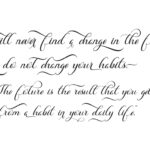 ill never find a change in the f
do not change your habits.
The future is the result that you get
from a habit in your daily life."